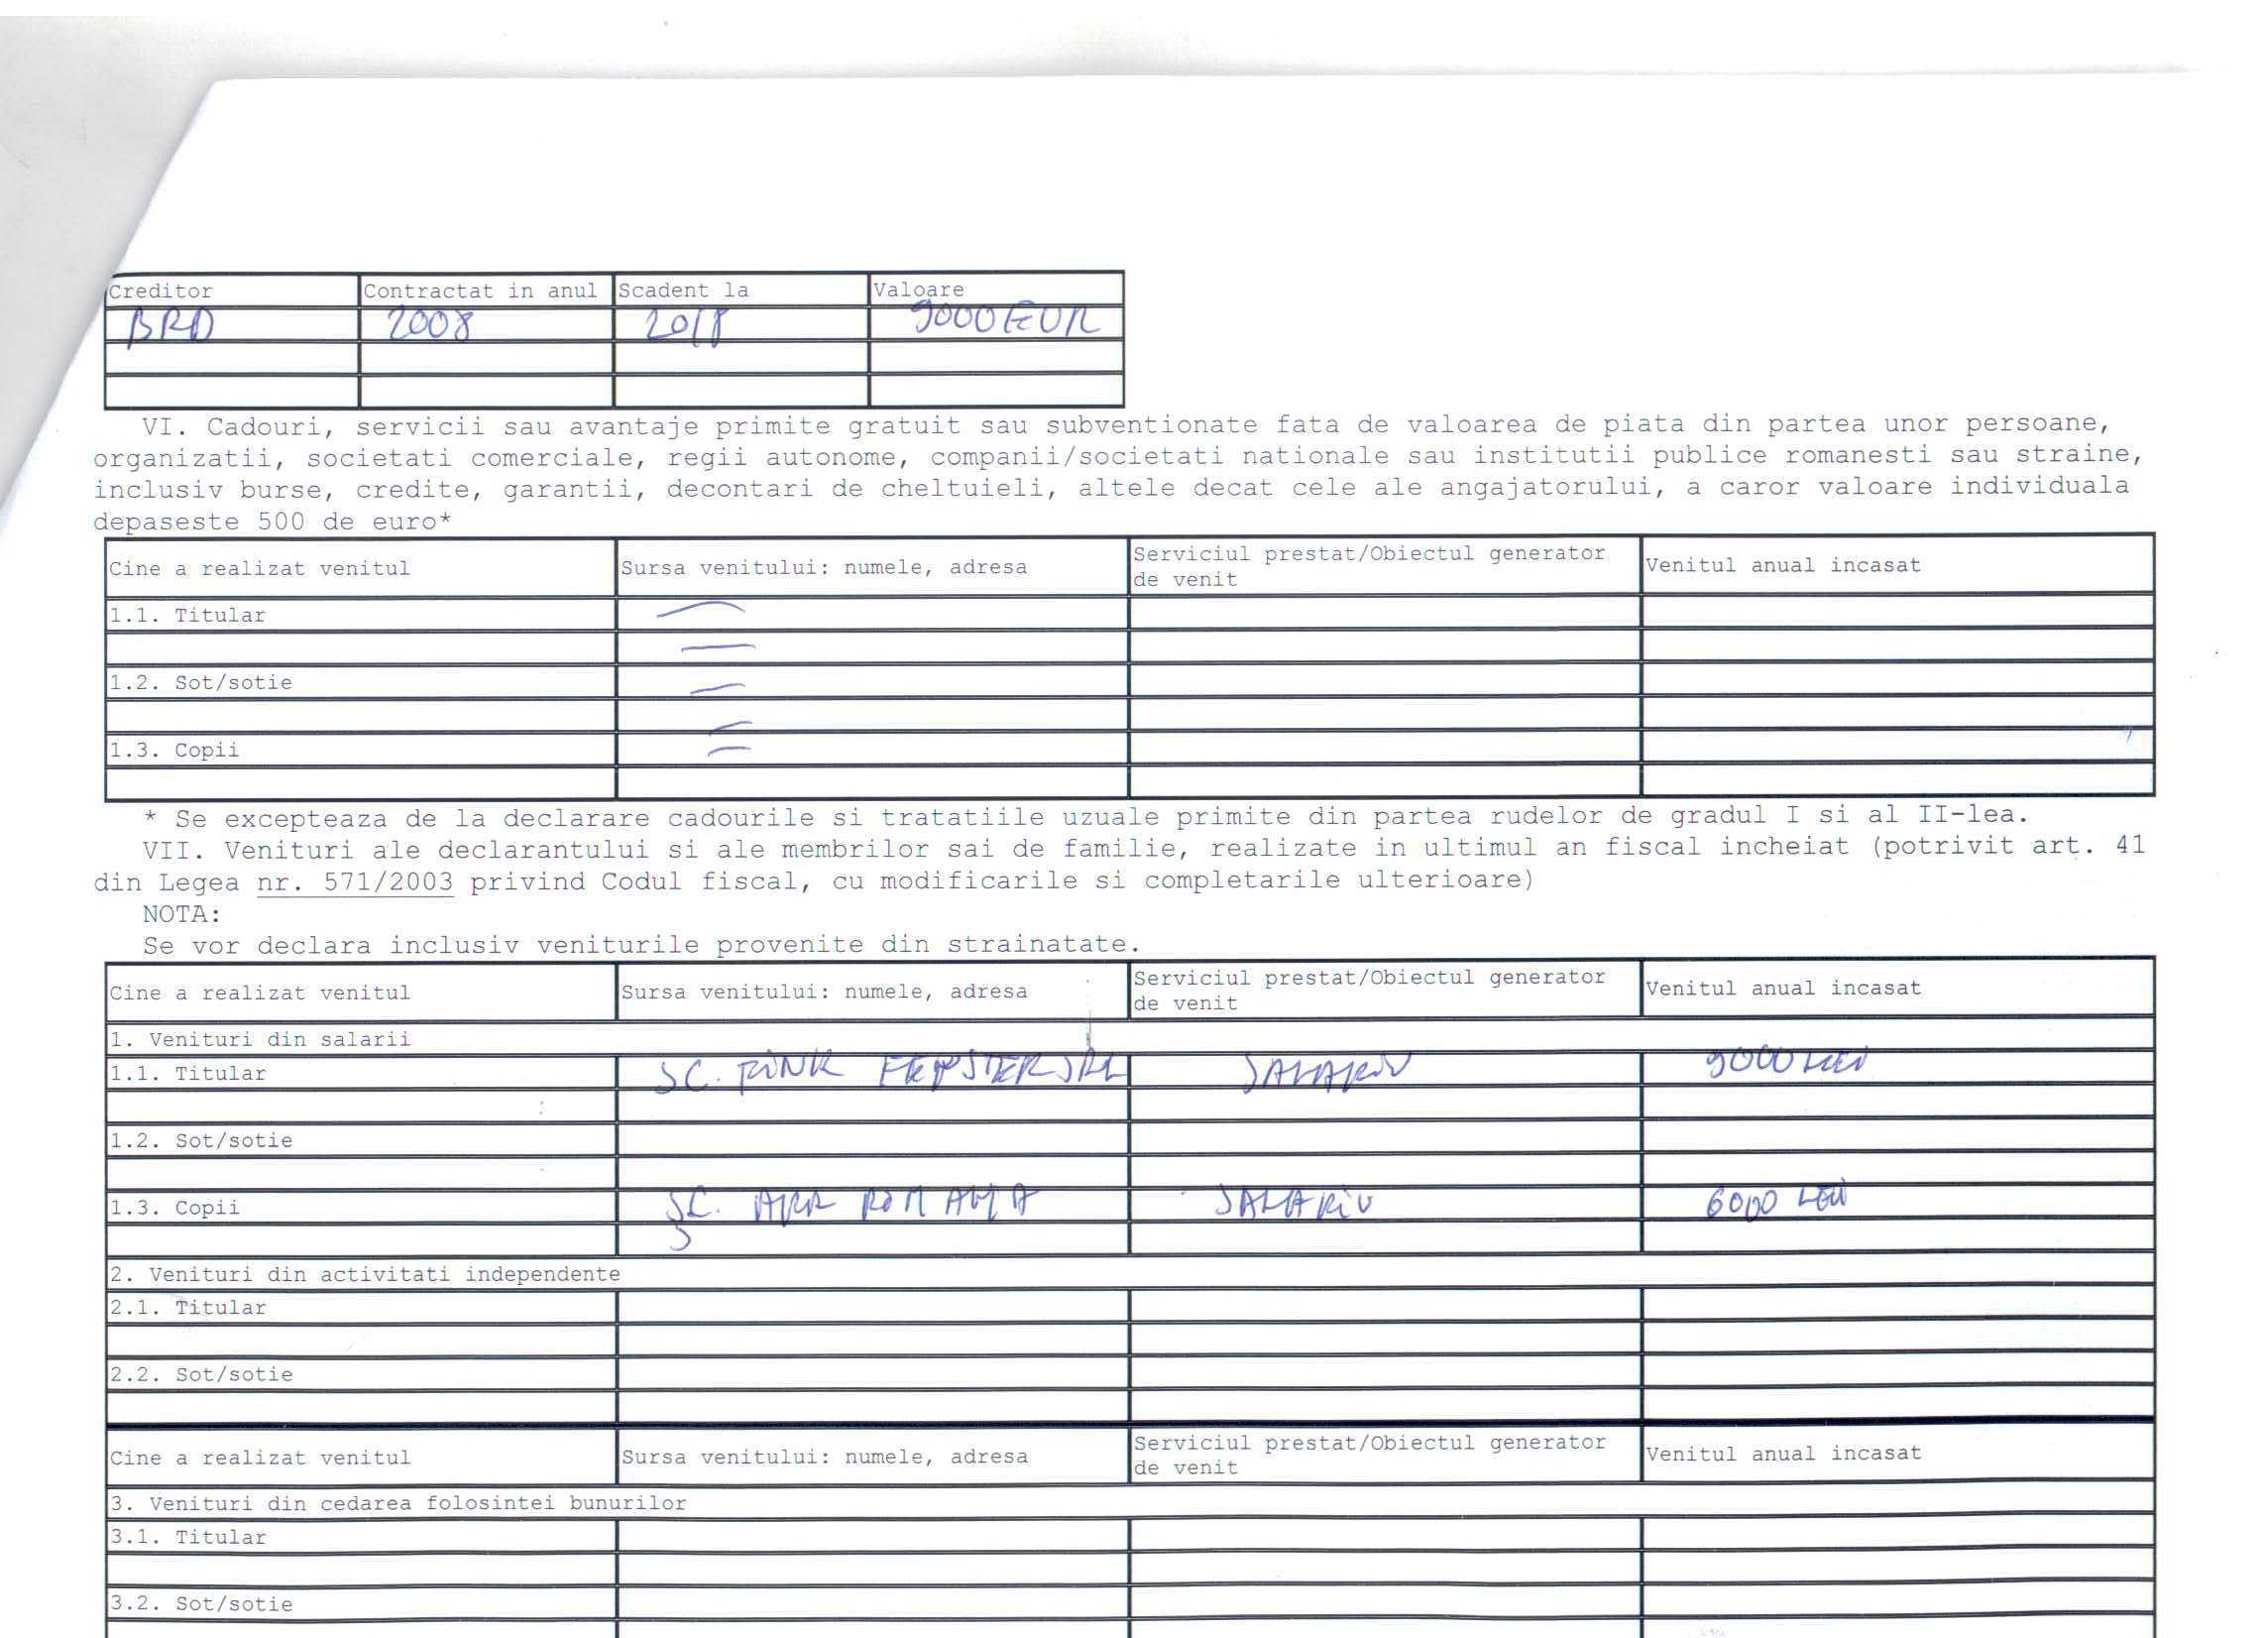 Creditor Contractat in anul Scadent la Valoare
BRD 2008 2018 9000 EUR
VI. Cadouri, servicii sau avantaje primite gratuit sau subventionate fata de valoarea de piata din partea unor persoane,
organizatii, societati comerciale, regii autonome, companii/societati nationale sau institutii publice romanesti sau straine,
inclusiv burse, credite, garantii, decontari de cheltuieli, altele decat cele ale angajatorului, a caror valoare individuala
depaseste 500 de euro*
Cine a realizat venitul Sursa venitului: numele, adresa Serviciul prestat/Obiectul generator de venit Venitul anual incasat
1.1. Titular —
—
1.2. Sot/sotie —
—
1.3. Copii —
* Se excepteaza de la declarare cadourile si tratatiile uzuale primite din partea rudelor de gradul I si al II-lea.
VII. Venituri ale declarantului si ale membrilor sai de familie, realizate in ultimul an fiscal incheiat (potrivit art. 41
din Legea nr. 571/2003 privind Codul fiscal, cu modificarile si completarile ulterioare)
NOTA:
Se vor declara inclusiv veniturile provenite din strainatate.
Cine a realizat venitul Sursa venitului: numele, adresa Serviciul prestat/Obiectul generator de venit Venitul anual incasat
1. Venituri din salarii
1.1. Titular SC. SRL SALARIU 9000 LEI
1.2. Sot/sotie
1.3. Copii SC. ROMANIA SALARIU 6000 LEI
2. Venituri din activitati independente
2.1. Titular
2.2. Sot/sotie
Cine a realizat venitul Sursa venitului: numele, adresa Serviciul prestat/Obiectul generator de venit Venitul anual incasat
3. Venituri din cedarea folosintei bunurilor
3.1. Titular
3.2. Sot/sotie